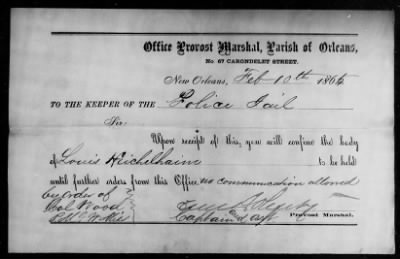 Office Provost Marshal, Parish of Orleans,
No 67 CARONDELET STREET.
New Orleans, Feb 10th 1865
TO THE KEEPER OF THE Police Jail
Sir:
Upon receipt of this, you will confine the body
of Louis Heichelheim to be held
until further orders from this Office no communication allowed
by order of
Col Wood
Captain & Provost Marshal.